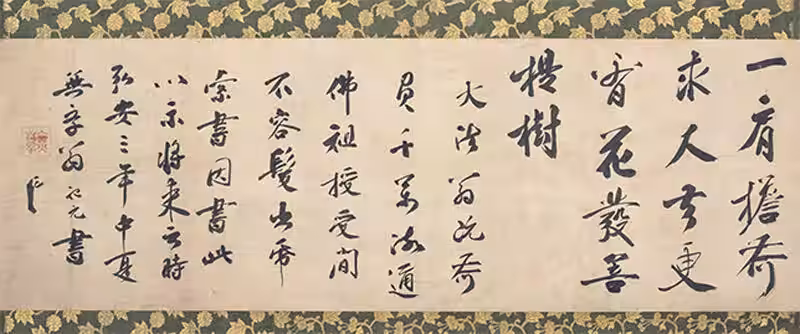 一肩擔荷
求人去更
花發菩
提樹
大法翁既荷
負千萬流通
佛祖授受間
不容髮出帋
索書因書此
以示將来云時
弘安三年中夏
無学翁祖元書